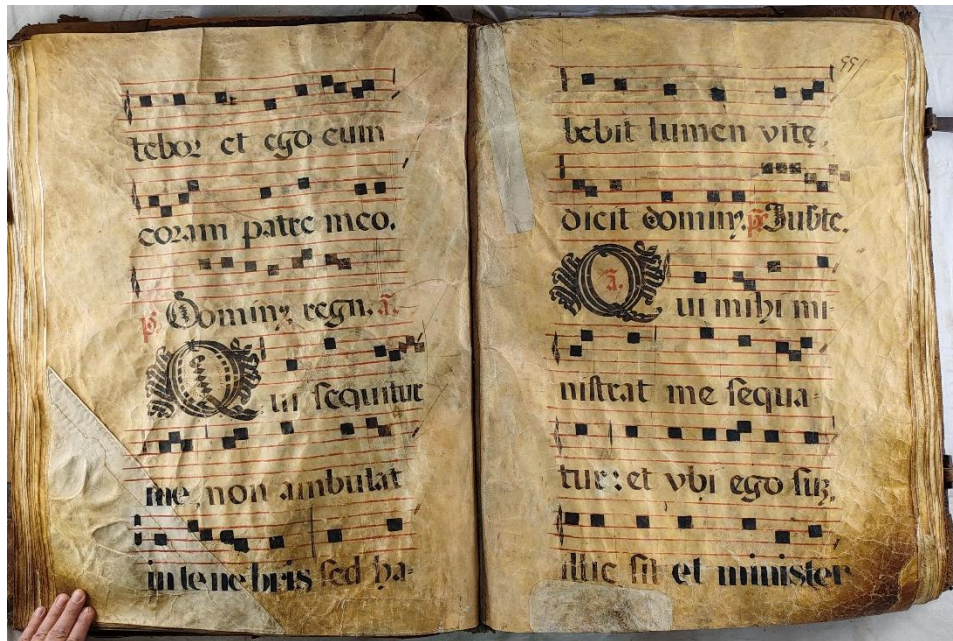 tebor et ego eum
coram patre meo.
ps. Dominꝰ regn. a.
Qui sequitur
me, non ambulat
in tenebris sed ha-
bebit lumen vitę,
dicit dominꝰ. ps. Jubte.
a.
Qui mihi mi-
nistrat me sequa-
tur: et vbi ego suȝ,
illic sit et minister